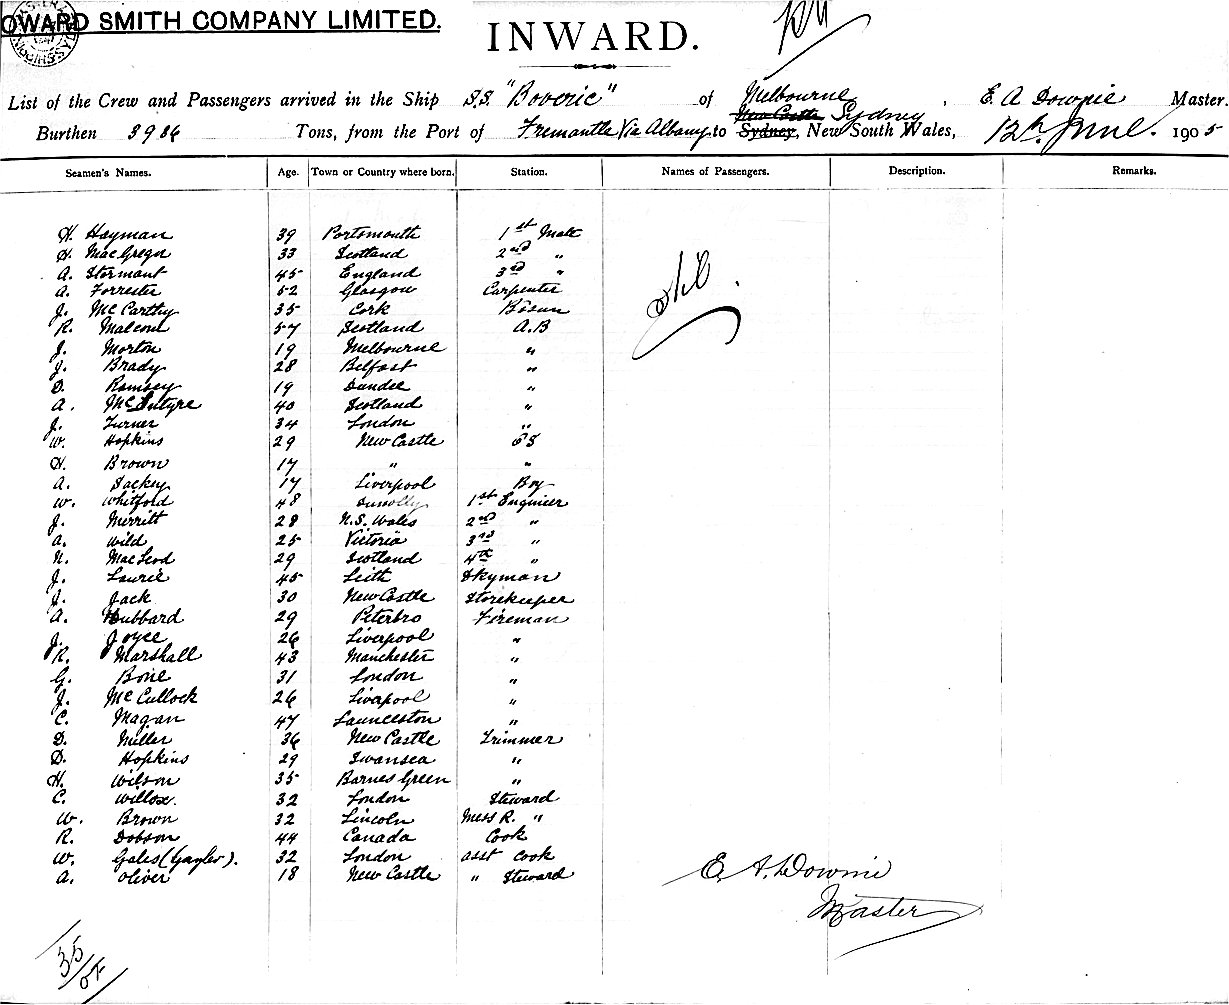 OWARD SMITH COMPANY LIMITED.
INWARD.
List of the Crew and Passengers arrived in the Ship S.S. "Boveric" of Melbourne, E. A Downie Master.
Burthen 3986 Tons, from the Port of Fremantle Via Albany to New Castle Sydney Sydney, New South Wales, 12th June. 1905
Seamen's Names. Age. Town or Country where born. Station. Names of Passengers. Description. Remarks.
H. Hayman 39 Portsmouth 1st Mate
H. MacGregor 33 Scotland 2nd "
A. Stormant 45 England 3rd "
A. Forrester 52 Glasgow Carpenter
Nil.
J. McCarthy 35 Cork Bosun
R. Malcom 57 Scotland A.B
J. Morton 19 Melbourne "
J. Brady 28 Belfast "
D. Ramsey 19 Dundee "
A. McIntyre 40 Scotland "
J. Turner 34 London "
W. Hopkins 29 New Castle OS
H. Brown 17 " "
A. Sackey 17 Liverpool Boy
W. Whitford 48 Dunolly 1st Engineer
J. Merritt 28 N.S. Wales 2nd "
A. Wild 25 Victoria 3rd "
N. MacLeod 29 Scotland 4th "
J. Laurie 45 Leith Dkyman
J. Jack 30 New Castle Storekeeper
A. Hubbard 29 Peterbro Fireman
J. Joyce 26 Liverpool "
R. Marshall 43 Manchester "
G. Bone 31 London "
J. McCullock 26 Liverpool "
C. Magan 47 Launceston "
D. Miller 36 New Castle Trimmer
D. Hopkins 29 Swansea "
H. Wilson 35 Barnes Green "
C. Willox. 32 London Steward
W. Brown 32 Lincoln Mess R. "
R. Dobson 44 Canada Cook
W. Gales (Gayler). 32 London asst Cook
A. Oliver 18 New Castle " Steward
E. A. Downie
Master
35